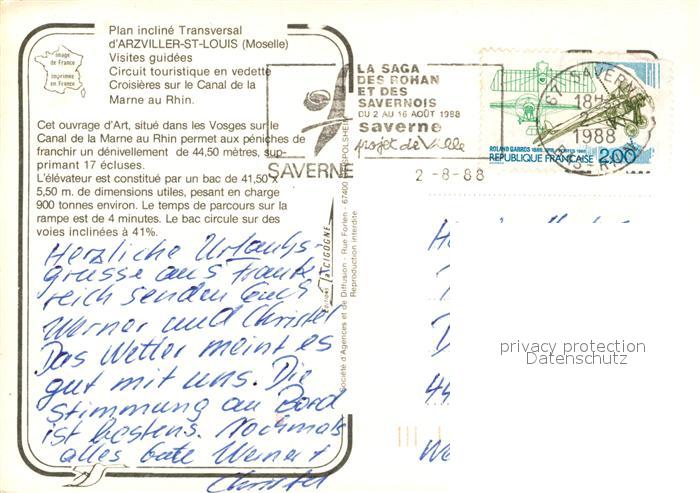 Plan incliné Transversal
d'ARZVILLER-ST-LOUIS (Moselle)
Visites guidées
Circuit touristique en vedette
Croisières sur le Canal de la
Marne au Rhin.
Image
de France
Imprimé en
France
Cet ouvrage d'Art, situé dans les Vosges sur le
Canal de la Marne au Rhin permet aux péniches de
franchir un dénivellement de 44,50 mètres, sup-
primant 17 écluses.
L'élévateur est constitué par un bac de 41,50 x
5,50 m. de dimensions utiles, pesant en charge
900 tonnes environ. Le temps de parcours sur la
rampe est de 4 minutes. Le bac circule sur des
voies inclinées à 41%.
Herzliche Urlaubs-
grüsse aus Frank-
reich senden Euch
Werner und Christel
Das Wetter meint es
gut mit uns. Die
Stimmung an Bord
ist bestens. Nochmals
alles Gute Werner +
Christel
SAVERNE
LA SAGA
DES ROHAN
ET DES
SAVERNOIS
DU 2 AU 16 AOÛT 1988
saverne
projet de ville
2-8-88
67 SAVERNE
18H
2-
1988
BAS-RHIN
ROLAND GARROS 1888
REPUBLIQUE FRANÇAISE 2,00
Editions La CIGOGNE
Société d'Agences et de Diffusion - Rue Forlen - 67400
Reproduction interdite
H
D
44
We
privacy protection
Datenschutz